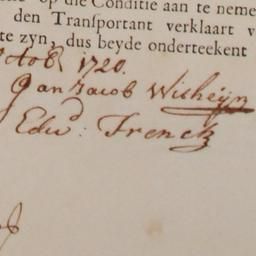 op die Conditie aan te neme
den Tranſportant verklaart v
te zyn, dus beyde onderteekent
octob 1720.
Jan Jacob Wisheijn
Edwd: Trenck